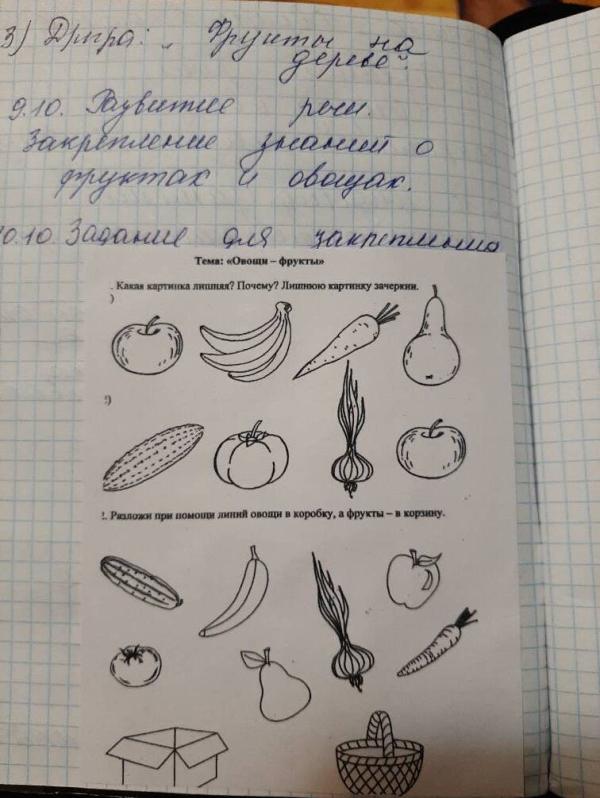 3) Д/игра: „ Фрукты на
дереве".
9.10. Развитие речи.
Закрепление знаний о
фруктах и овощах.
10.10 Задание для закрепления
Тема: «Овощи – фрукты»
. Какая картинка лишняя? Почему? Лишнюю картинку зачеркни.
)
2)
2. Разложи при помощи линий овощи в коробку, а фрукты – в корзину.